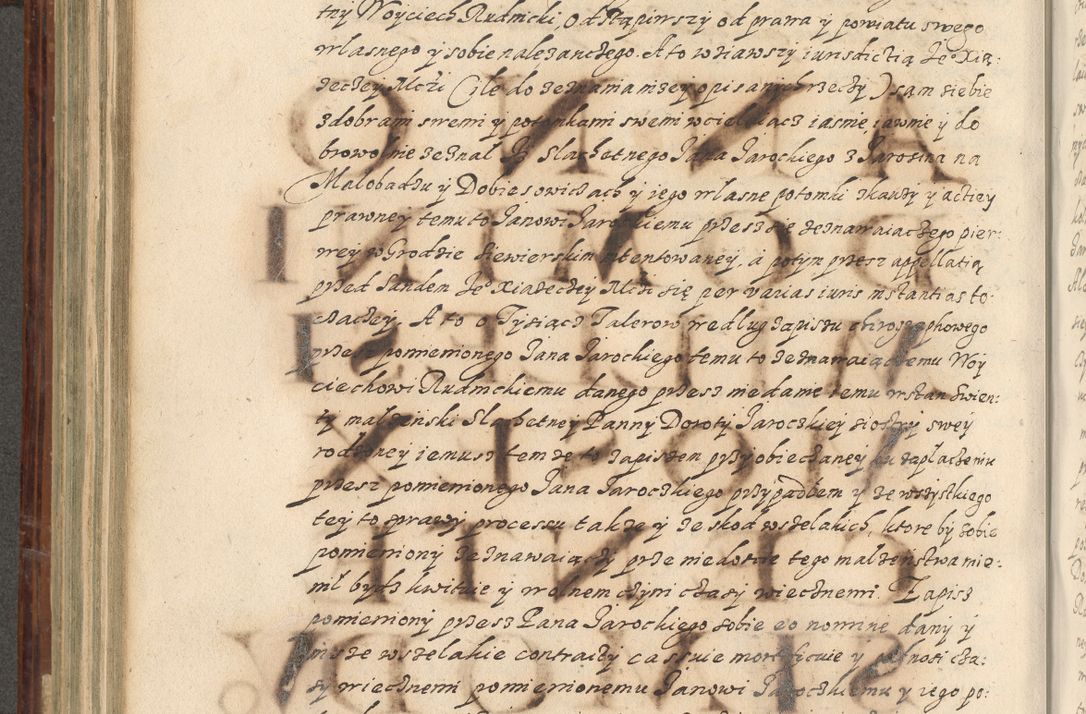 tny Woyciech Rudnicki odstąpiwszy od prawa y powiatu swego
własnego y sobie należanczego. A to wziawszy iurisdictią Je° Xią:
żeczey Mczi (ile do zeznania niżey opisanych rzeczy) sam siebie
z dobrami swemi y potomkami swemi wcielaiacz iasnie iawnie y do
browolnie zeznał Jż Slachetnego Jana Jarockiego z Jarosina na
Małobadzu y Dobiesowiczach y iego własne potomki skargy y actiey
prawney temu to Janowi Jarockiemu przesz się zeznawaiączego pier:
wey w Grodzie Siewierskim intentowaney, a potym przez appellatią
przed Sandem Je° Xiążeczey Mczi się per varias iuris instantias to:
czączey. A to o Tysiącz Talerow według zapiszu chirographowego
przesz pomienionego Jana Jarockiego temu to zeznawaiączemu Woy
ciechowi Rudnickiemu danego przesz niedanie iemu w stan Swien:
ty malżenski Slachetney Panny Doroty Jaroczkiey siostry swey
rodzoney iemusz tem że to zapiszem przyobieczaney ku zapłaczeniu
przesz pomienionego Jana Jaroczkiego przypadłem y ze wszystkiego
tey to sprawy processu także y ze skod wszelakich, ktore by sobie
pomieniony zeznawaiączy prze niedoście tego malżenstwa mie:
nił bydz kwituie y wolnem czyni czasy wiecznemi. Zapisz
pomieniony przesz Pana Jarockiego sobie eo nomine dany y
insze wszelakie contracty cassuie mortificuie y wnosi cza:
sy wiecznemi pomienionemu Janowi Jaroczkiemu y iego po: